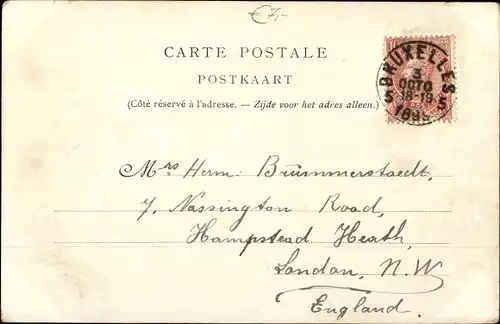 €7,-
CARTE POSTALE
POSTKAART
(Côté réservé à l'adresse. — Zijde voor het adres alleen.)
BRUXELLES
3
OCTO
5 18-19 5
Mrs Herm: Brümmerstaedt,
7, Nassington Road,
Hampstead Heath,
London, N.W
England.